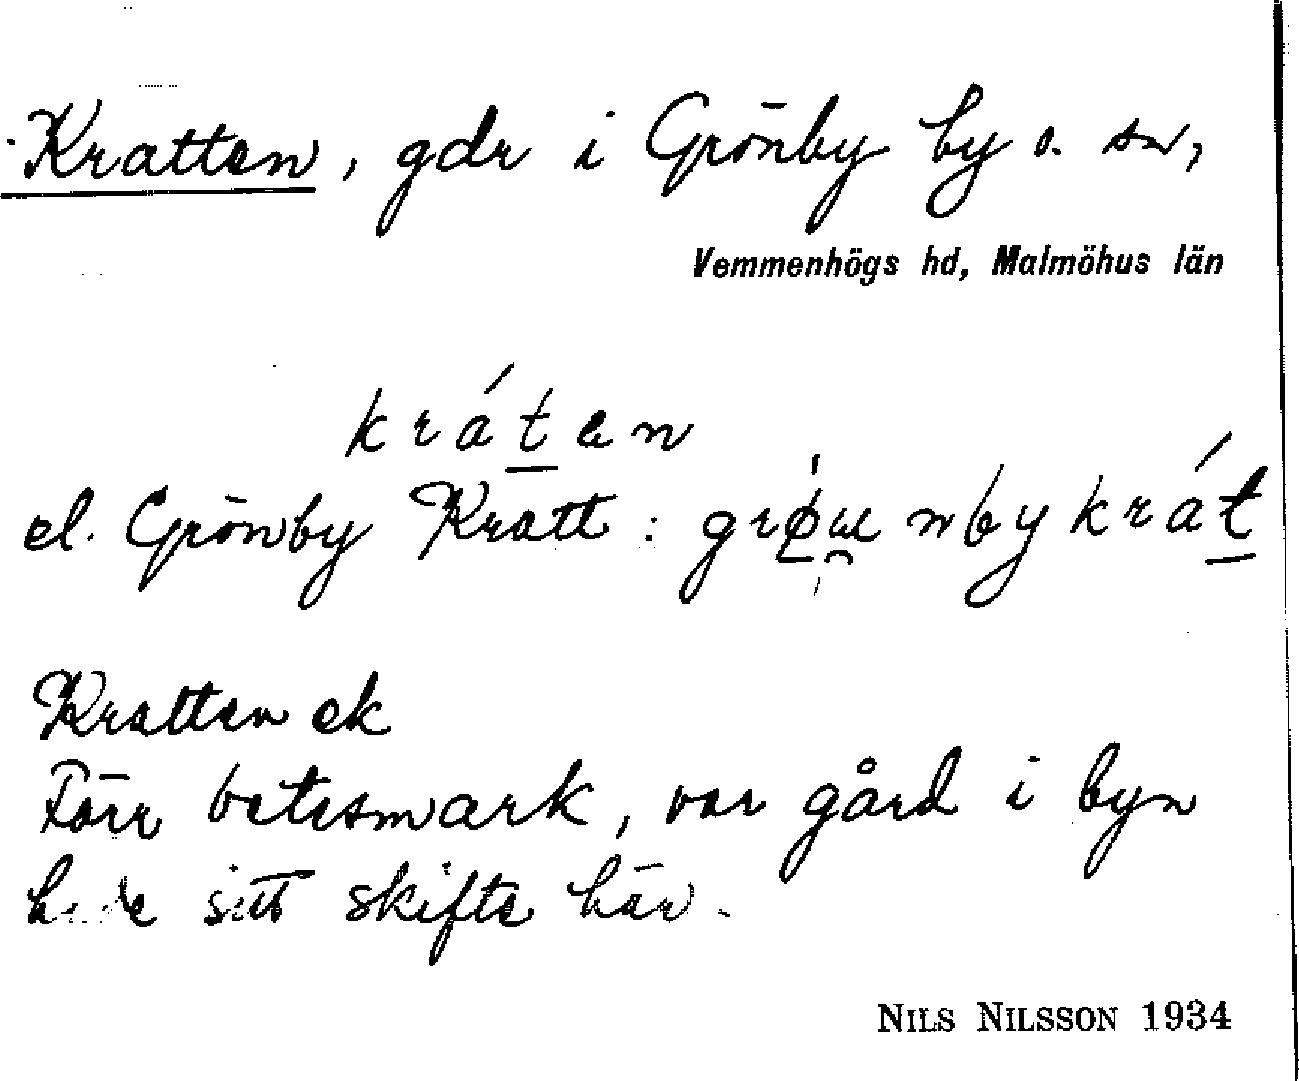 Kratten, gdr i Grönby by o. sn,
Vemmenhögs hd, Malmöhus län
kráten
el. Grönby Kratt: grøu̯nbykrát
Kratten ek
Förr betesmark, var gård i byn
hade sitt skifte här.
NILS NILSSON 1934